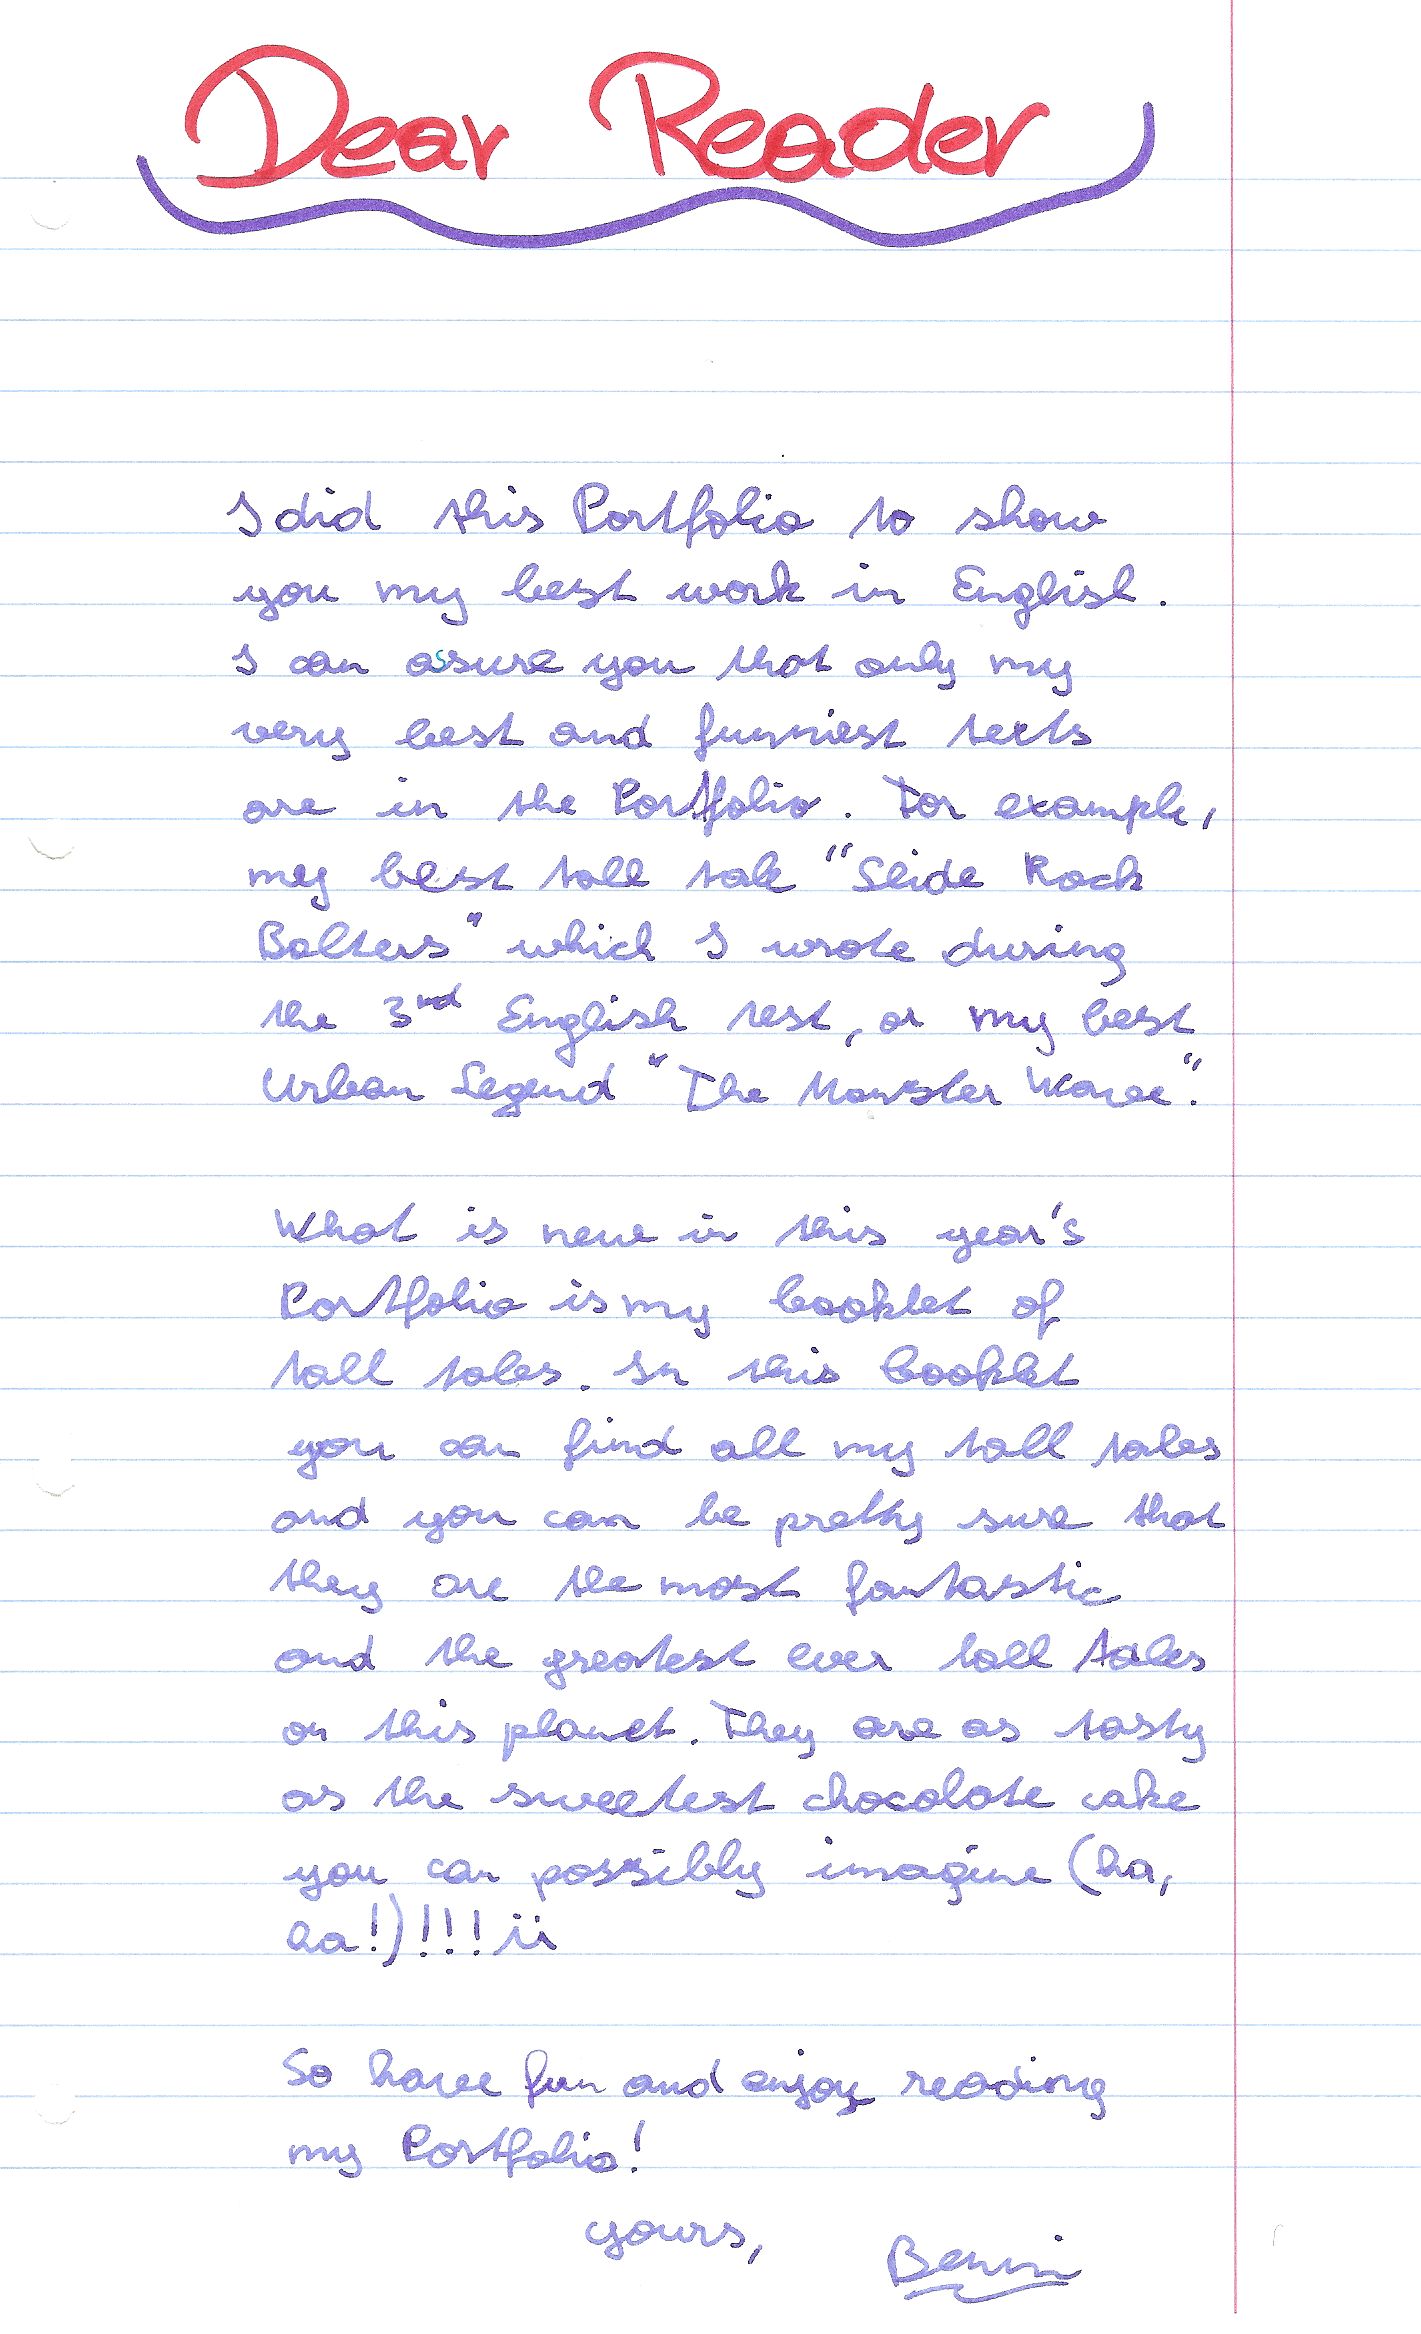 Dear Reader
I did this Portfolio to show
you my best work in English.
I can assure you that only my
very best and funniest texts
are in the Portfolio. For example,
my best tall tale "Slide Rock
Bolters" which I wrote during
the 3nd English test, or my best
Urban Legend "The Monster Wave".
What is new in this year's
Portfolio is my booklet of
tall tales. In this booklet
you can find all my tall tales
and you can be pretty sure that
they are the most fantastic
and the greatest ever tall tales
on this planet. They are as tasty
as the sweetest chocolate cake
you can possibly imagine (ha,
ha!)!!!¡¡
So have fun and enjoy reading
my Portfolio!
yours, Benni